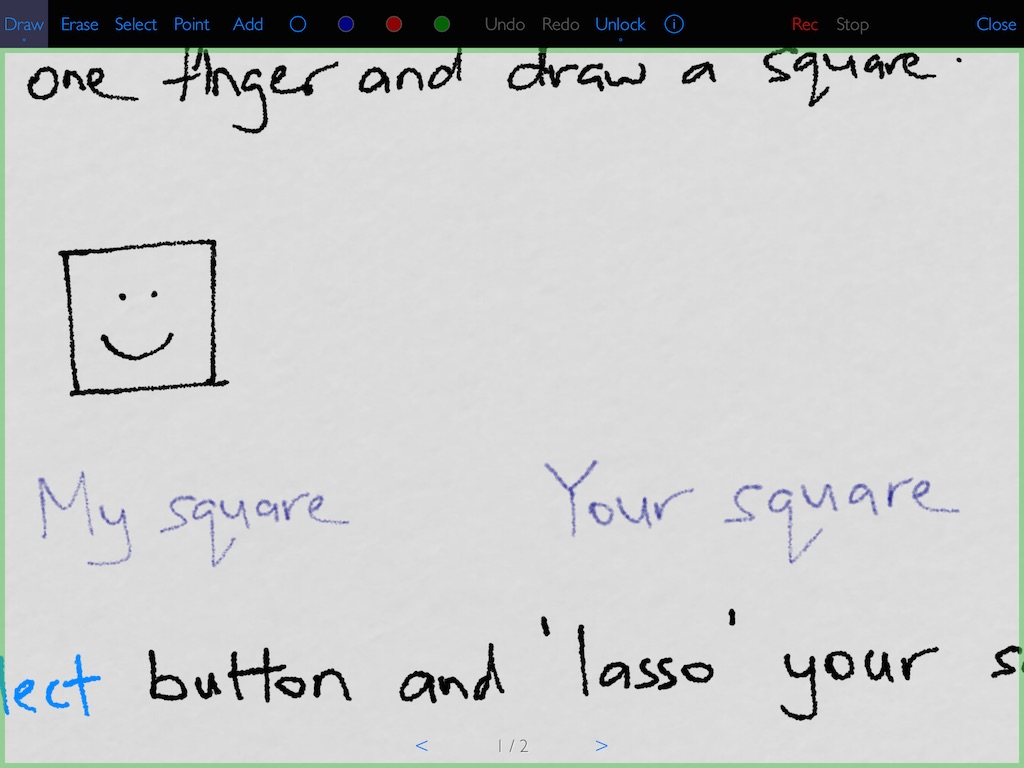 Draw Erase Select Point Add Undo Redo Unlock Rec Stop Close
one finger and draw a square.
My square Your square
lect button and 'lasso' your s
< 1 / 2 >